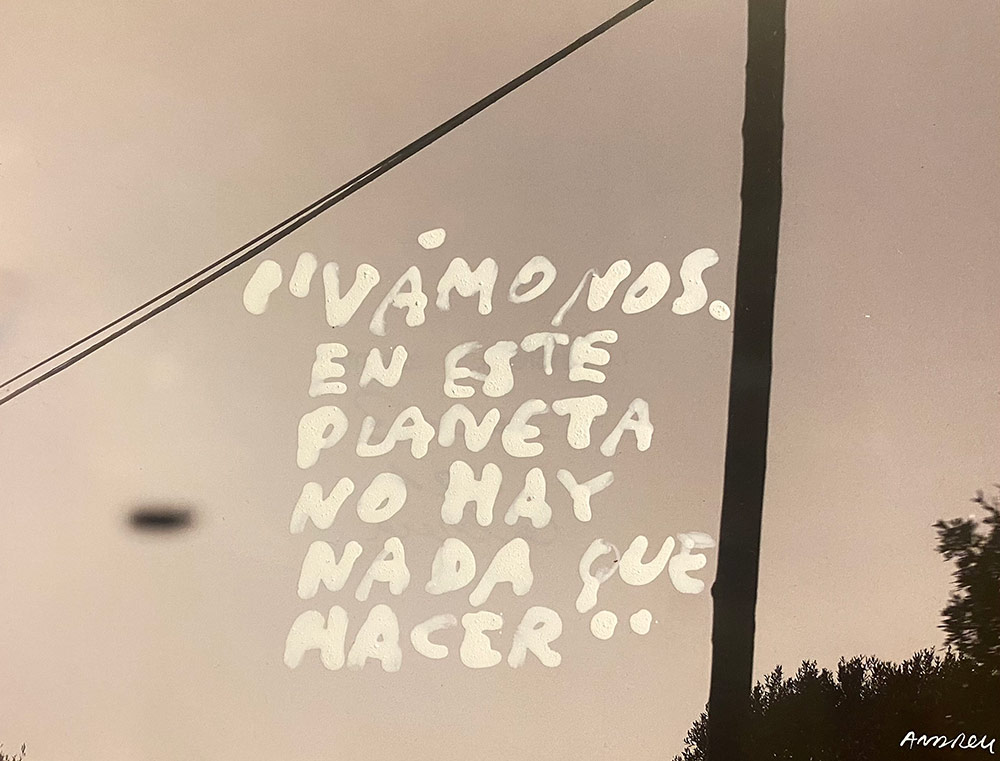 "VÁMONOS.
EN ESTE
PLANETA
NO HAY
NADA QUE
HACER"
ANDREU